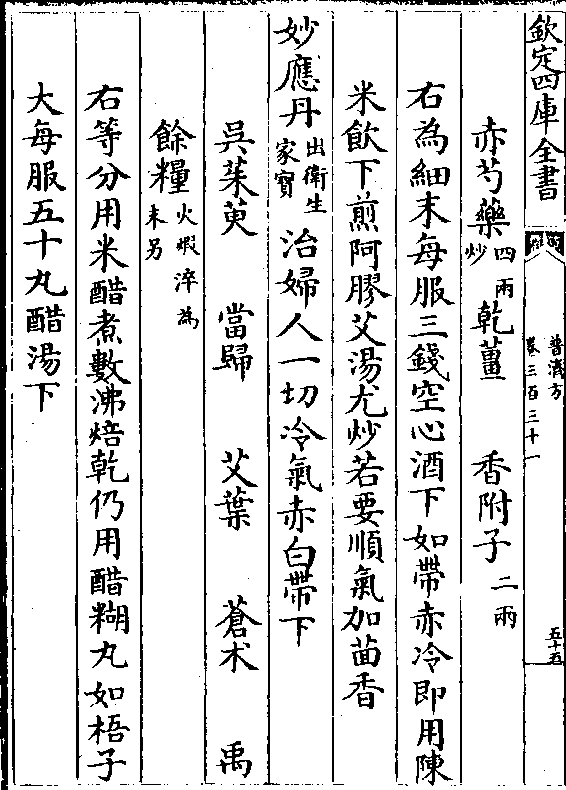 欽定四庫全書
普濟方
卷三百三十一
五十五
赤芍藥四兩炒乾薑　香附子二兩
右為細末每服三錢空心酒下如帶赤冷即用陳
米飲下煎阿膠艾湯尤炒若要順氣加茴香
妙應丹出衛生家寳治婦人一切冷氣赤白帶下
吳茱萸　當歸　艾葉　蒼术　禹
餘糧火煆淬為末另
右等分用米醋煮數沸焙乾仍用醋糊丸如梧子
大每服五十丸醋湯下